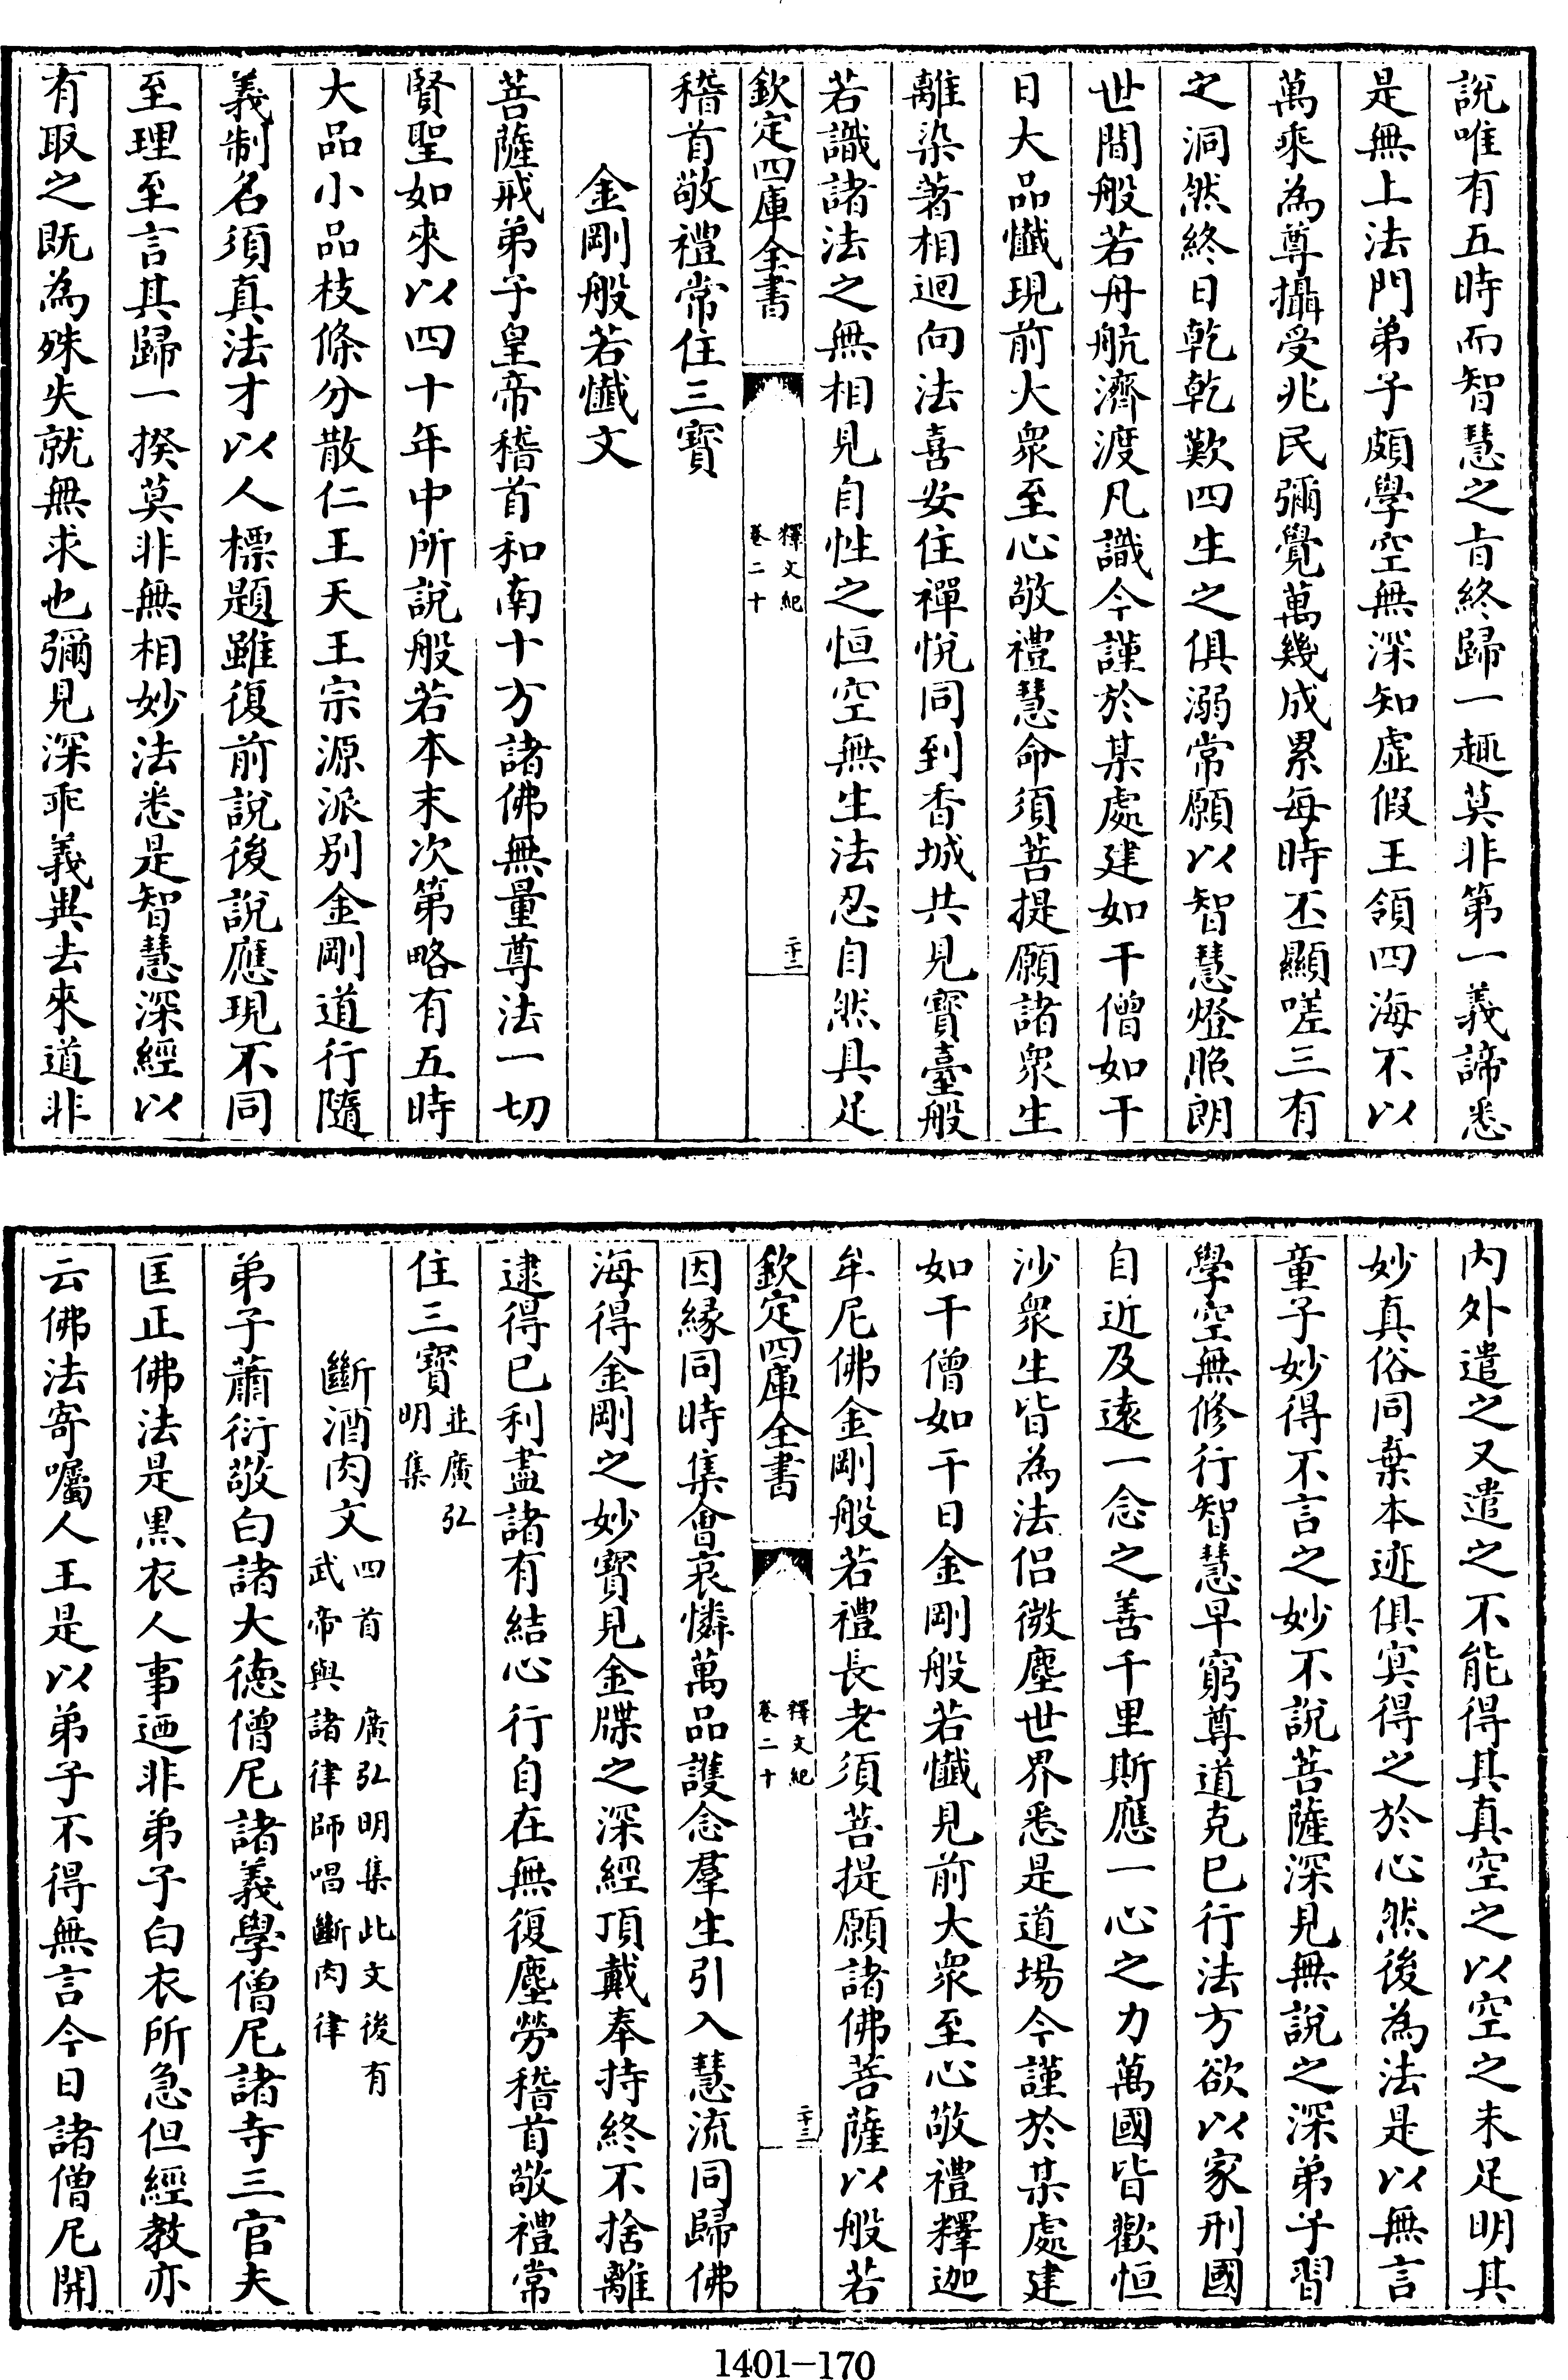 說唯有五時而智慧之㫖終歸一趣莫非第一義諦悉
是無上法門弟子頗學空無深知虚假王領四海不以
萬乘為尊攝受兆民彌覺萬幾成累每時丕顯嗟三有
之洞然終日乾乾歎四生之俱溺常願以智慧燈照朗
世間般若舟航濟渡凡識今謹於某處建如干僧如干
日大品懺現前大衆至心敬禮慧命須菩提願諸衆生
離染著相迴向法喜安住禪悅同到香城共見寶臺般
若識諸法之無相見自性之恒空無生法忍自然具足
欽定四庫全書
釋文紀
卷二十
二十二
稽首敬禮常住三寶
金剛般若懺文
菩薩戒弟子皇帝稽首和南十方諸佛無量尊法一切
賢聖如來以四十年中所說般若本末次第略有五時
大品小品枝條分散仁王天王宗源派别金剛道行隨
義制名須真法才以人標題雖復前說後說應現不同
至理至言其歸一揆莫非無相妙法悉是智慧深經以
有取之既為殊失就無求也彌見深乖義異去來道非
内外遣之又遣之不能得其真空之以空之未足明其
妙真俗同棄本迹俱㝠得之於心然後為法是以無言
童子妙得不言之妙不說菩薩深見無說之深弟子習
學空無修行智慧早窮尊道克已行法方欲以家刑國
自近及遠一念之善千里斯應一心之力萬國皆歡恒
沙衆生皆為法侣微塵世界悉是道場今謹於某處建
如干僧如干日金剛般若懺見前大衆至心敬禮釋迦
牟尼佛金剛般若禮長老須菩提願諸佛菩薩以般若
欽定四庫全書
釋文紀
卷二十
二十三
因縁同時集會哀憐萬品護念羣生引入慧流同歸佛
海得金剛之妙寶見金牒之深經頂戴奉持終不捨離
逮得已利盡諸有結心行自在無復塵勞稽首敬禮常
住三寶並廣弘明集
斷酒肉文四首 廣弘明集此文後有武帝與諸律師唱斷肉律
弟子蕭衍敬白諸大德僧尼諸義學僧尼諸寺三官夫
匡正佛法是黒衣人事迺非弟子白衣所急但經教亦
云佛法寄囑人王是以弟子不得無言今日諸僧尼開
1401—170